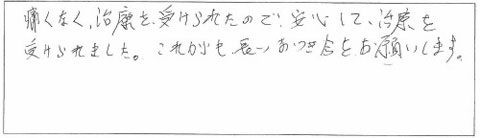 痛くなく、治療を受けられたので、安心して、治療を
受けられました。これからも長いおつき合をお願いします。